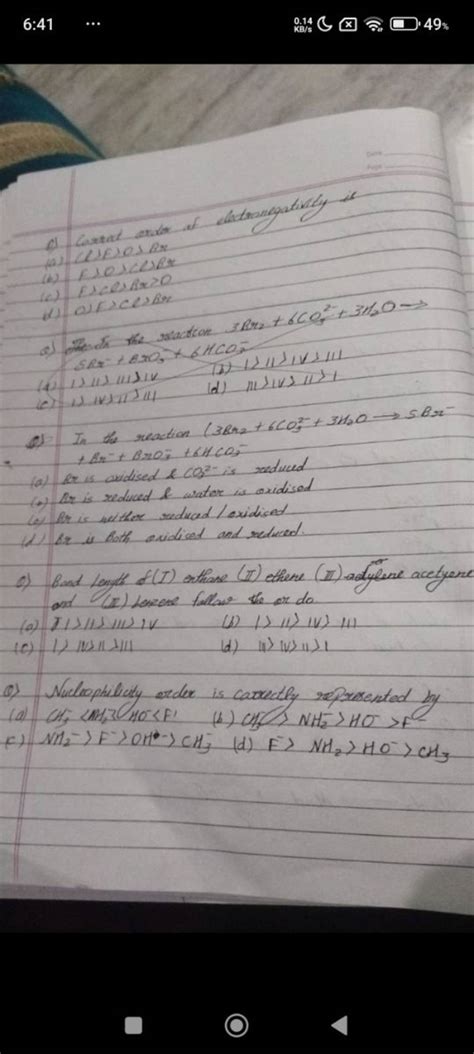 6:41 ... 0.14 KB/s 49%
Date
Page
Q) Correct order of electronegativity is
(a) Cl>F>O>Br
(b) F>O>Cl>Br
(c) F>Cl>Br>O
(d) O>F>Cl>Br
Q) In the reaction 3Br₂ + 6CO₃²⁻ + 3H₂O →
5Br⁻ + BrO₃⁻ + 6HCO₃⁻
(a) I > II > III > IV (b) I > II > IV > III
(c) I > IV > II > III (d) III > IV > II > I
Q) In the reaction (3Br₂ + 6CO₃²⁻ + 3H₂O → 5Br⁻
+ Br⁻ + BrO₃⁻ + 6HCO₃⁻
(a) Br is oxidised & CO₃²⁻ is reduced
Br is reduced & water is oxidised
(c) Br is neither reduced / oxidised
(d) Br is Both oxidised and reduced.
Q) Bond length of (I) enthane (II) ethene (III) acetyene
and benzene follow the or do
(a) I > II > III > IV (b) I > II > IV > III
(c) I > IV > II > III (d) III > IV > II > I
Q) Nucleophilicity order is correctly represented by
(a) CH₃⁻ < NH₂⁻ < HO⁻ < F⁻ (b) CH₃⁻ > NH₂⁻ > HO⁻ > F⁻
c) NH₂⁻ > F⁻ > OH⁻ > CH₃⁻ (d) F⁻ > NH₂ > HO⁻ > CH₃